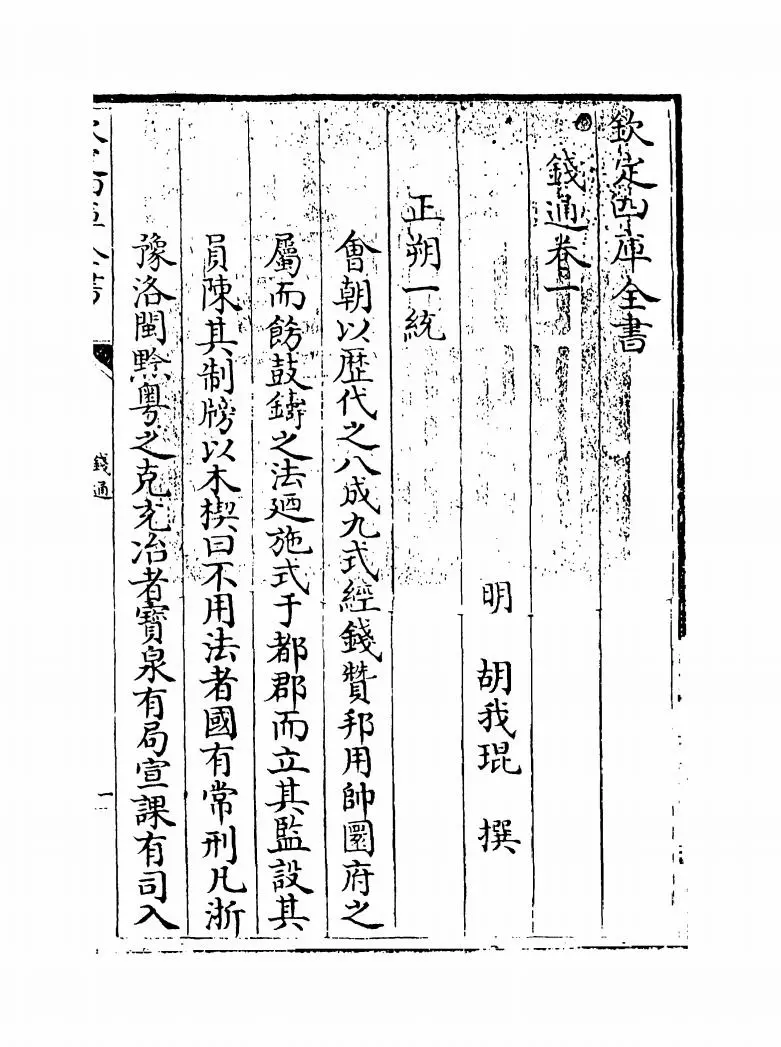 欽定四庫全書
錢通卷一
明 胡我琨 撰
正朔一統
會朝以歴代之八成九式經錢贊邦用帥圜府之
屬而飭鼓鑄之法廼施式于都郡而立其監設其
員陳其制牓以木楔曰不用法者國有常刑凡浙
豫洛閩黔粤之克充冶者寶泉有局宣課有司入
錢通
一